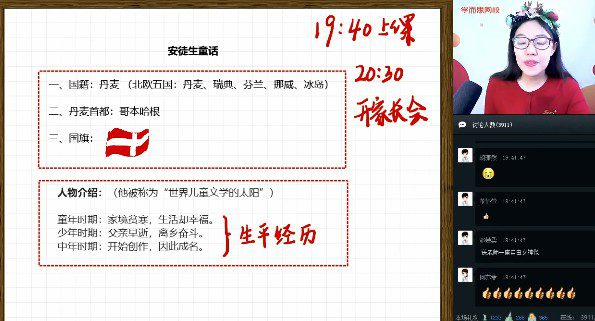 安徒生童话
19:40上课
20:30
开家长会
一、国籍：丹麦（北欧五国：丹麦、瑞典、芬兰、挪威、冰岛）
二、丹麦首都：哥本哈根
三、国旗：
人物介绍：（他被称为“世界儿童文学的太阳”）
童年时期：家境贫寒，生活却幸福。
少年时期：父亲早逝，离乡奋斗。
中年时期：开始创作，因此成名。
生平经历
学而思网校
讨论人数(3911)
19:41:47
19:41:47
19:41:47
19:41:47